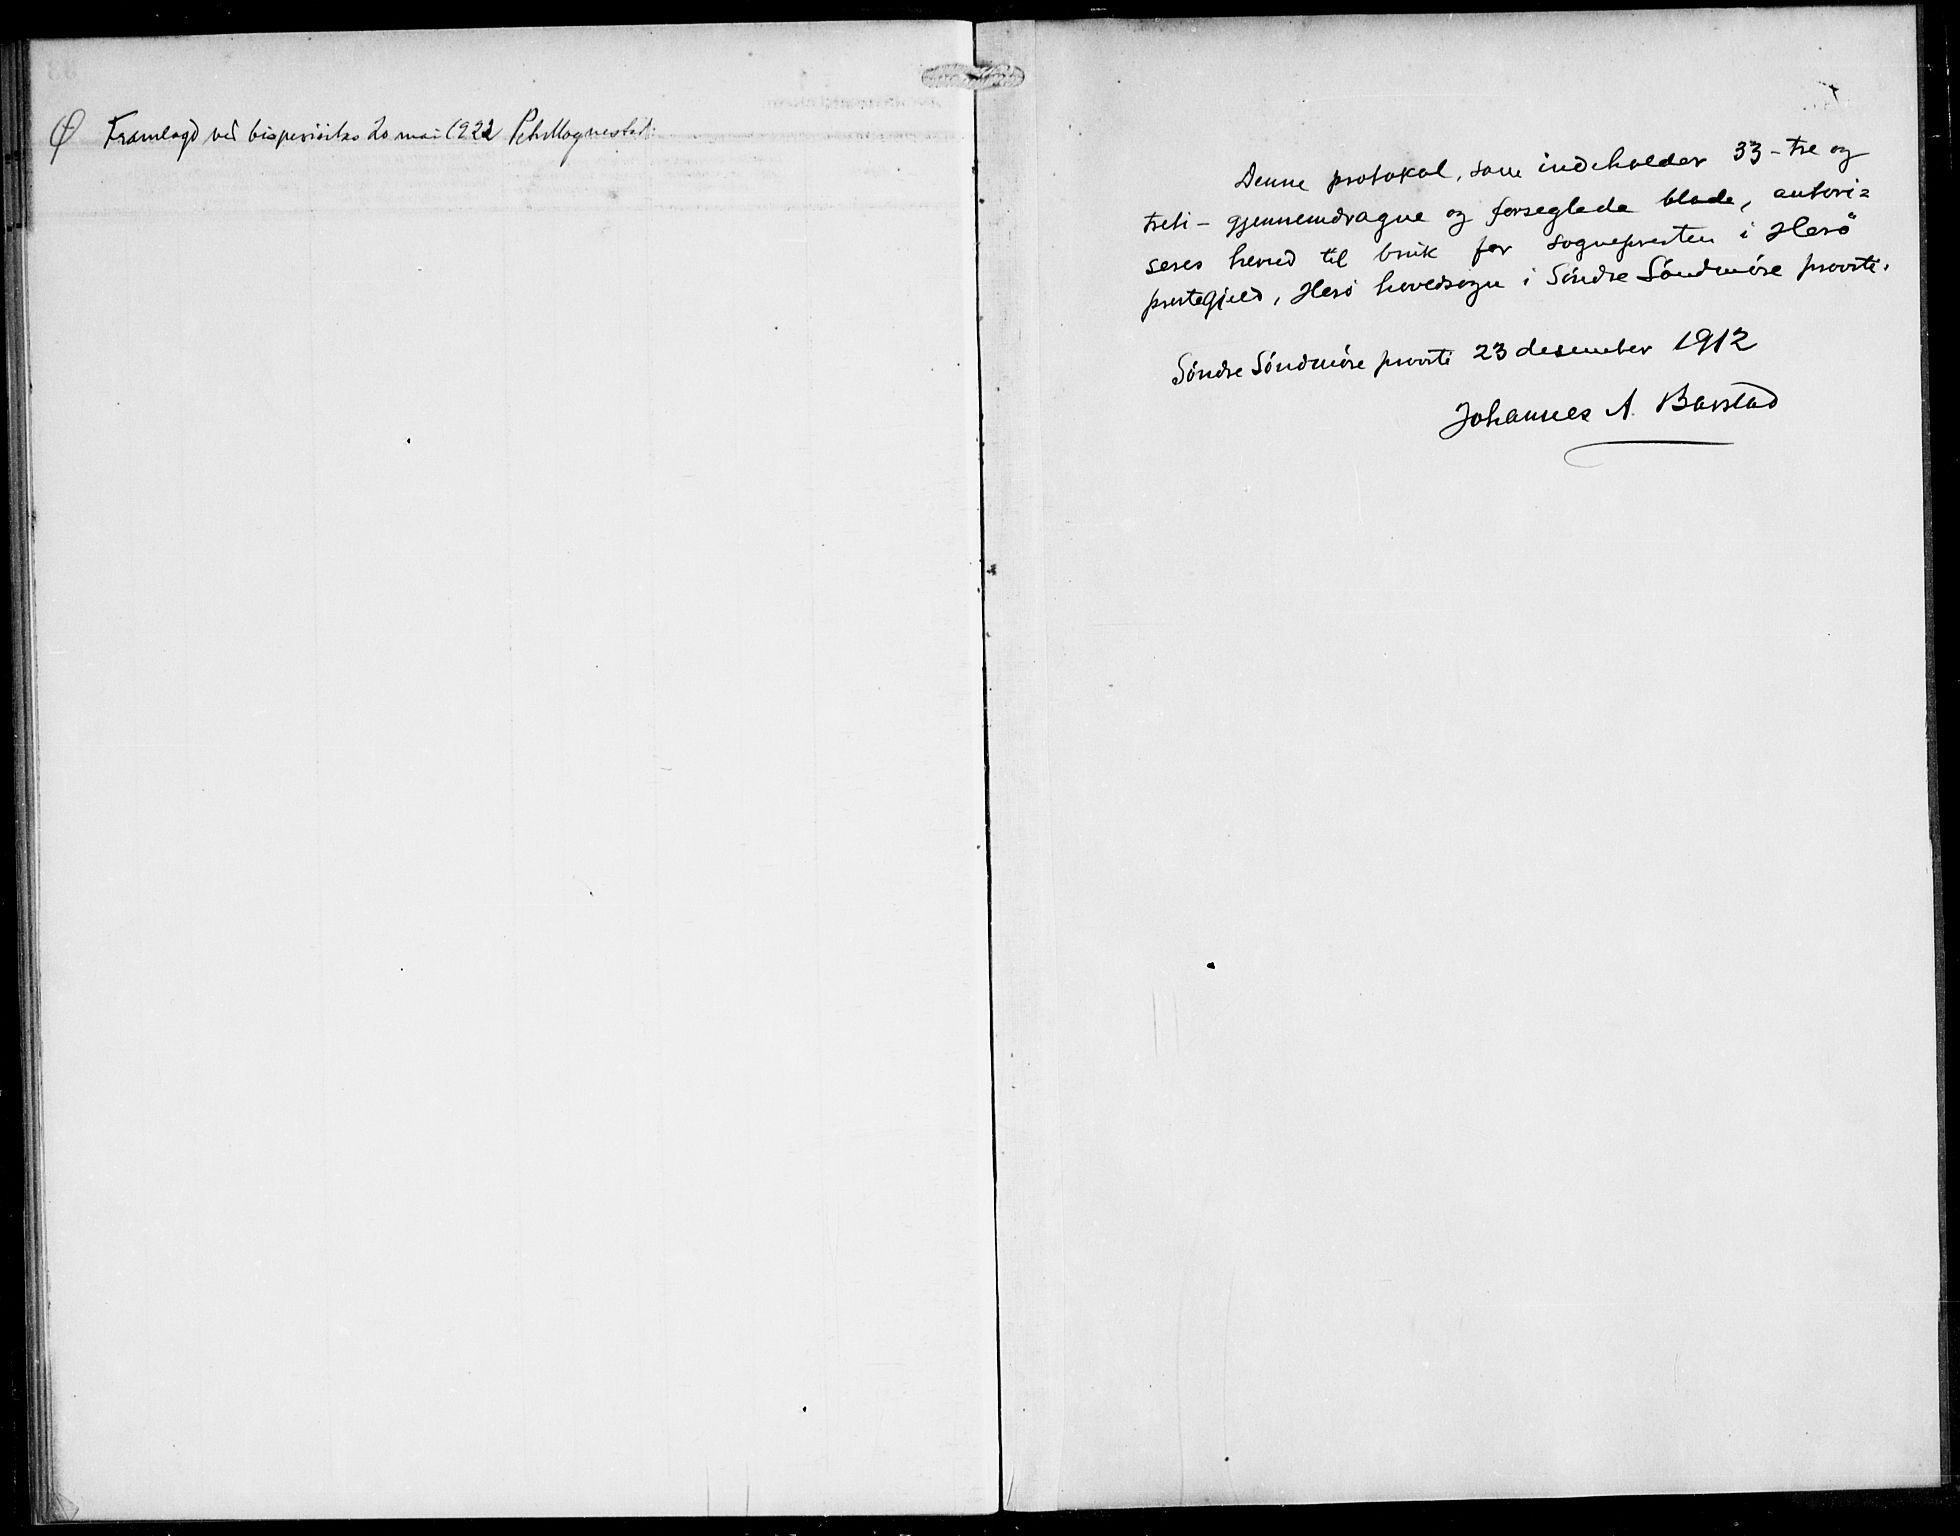 Framlagd ved bispevisitas 20 mai 1922 Petr Mognestad.
Denne protokol, som indeholder 33 - tre og
treti - gjennemdragne og forseglede blade, autori=
seres herved til bruk for sognepresten i Herö
prestegjeld, Herö hovedsogn i Söndre Söndmöre provsti.
Söndre Söndmöre provsti 23 desember 1912
Johannes A. Barstad